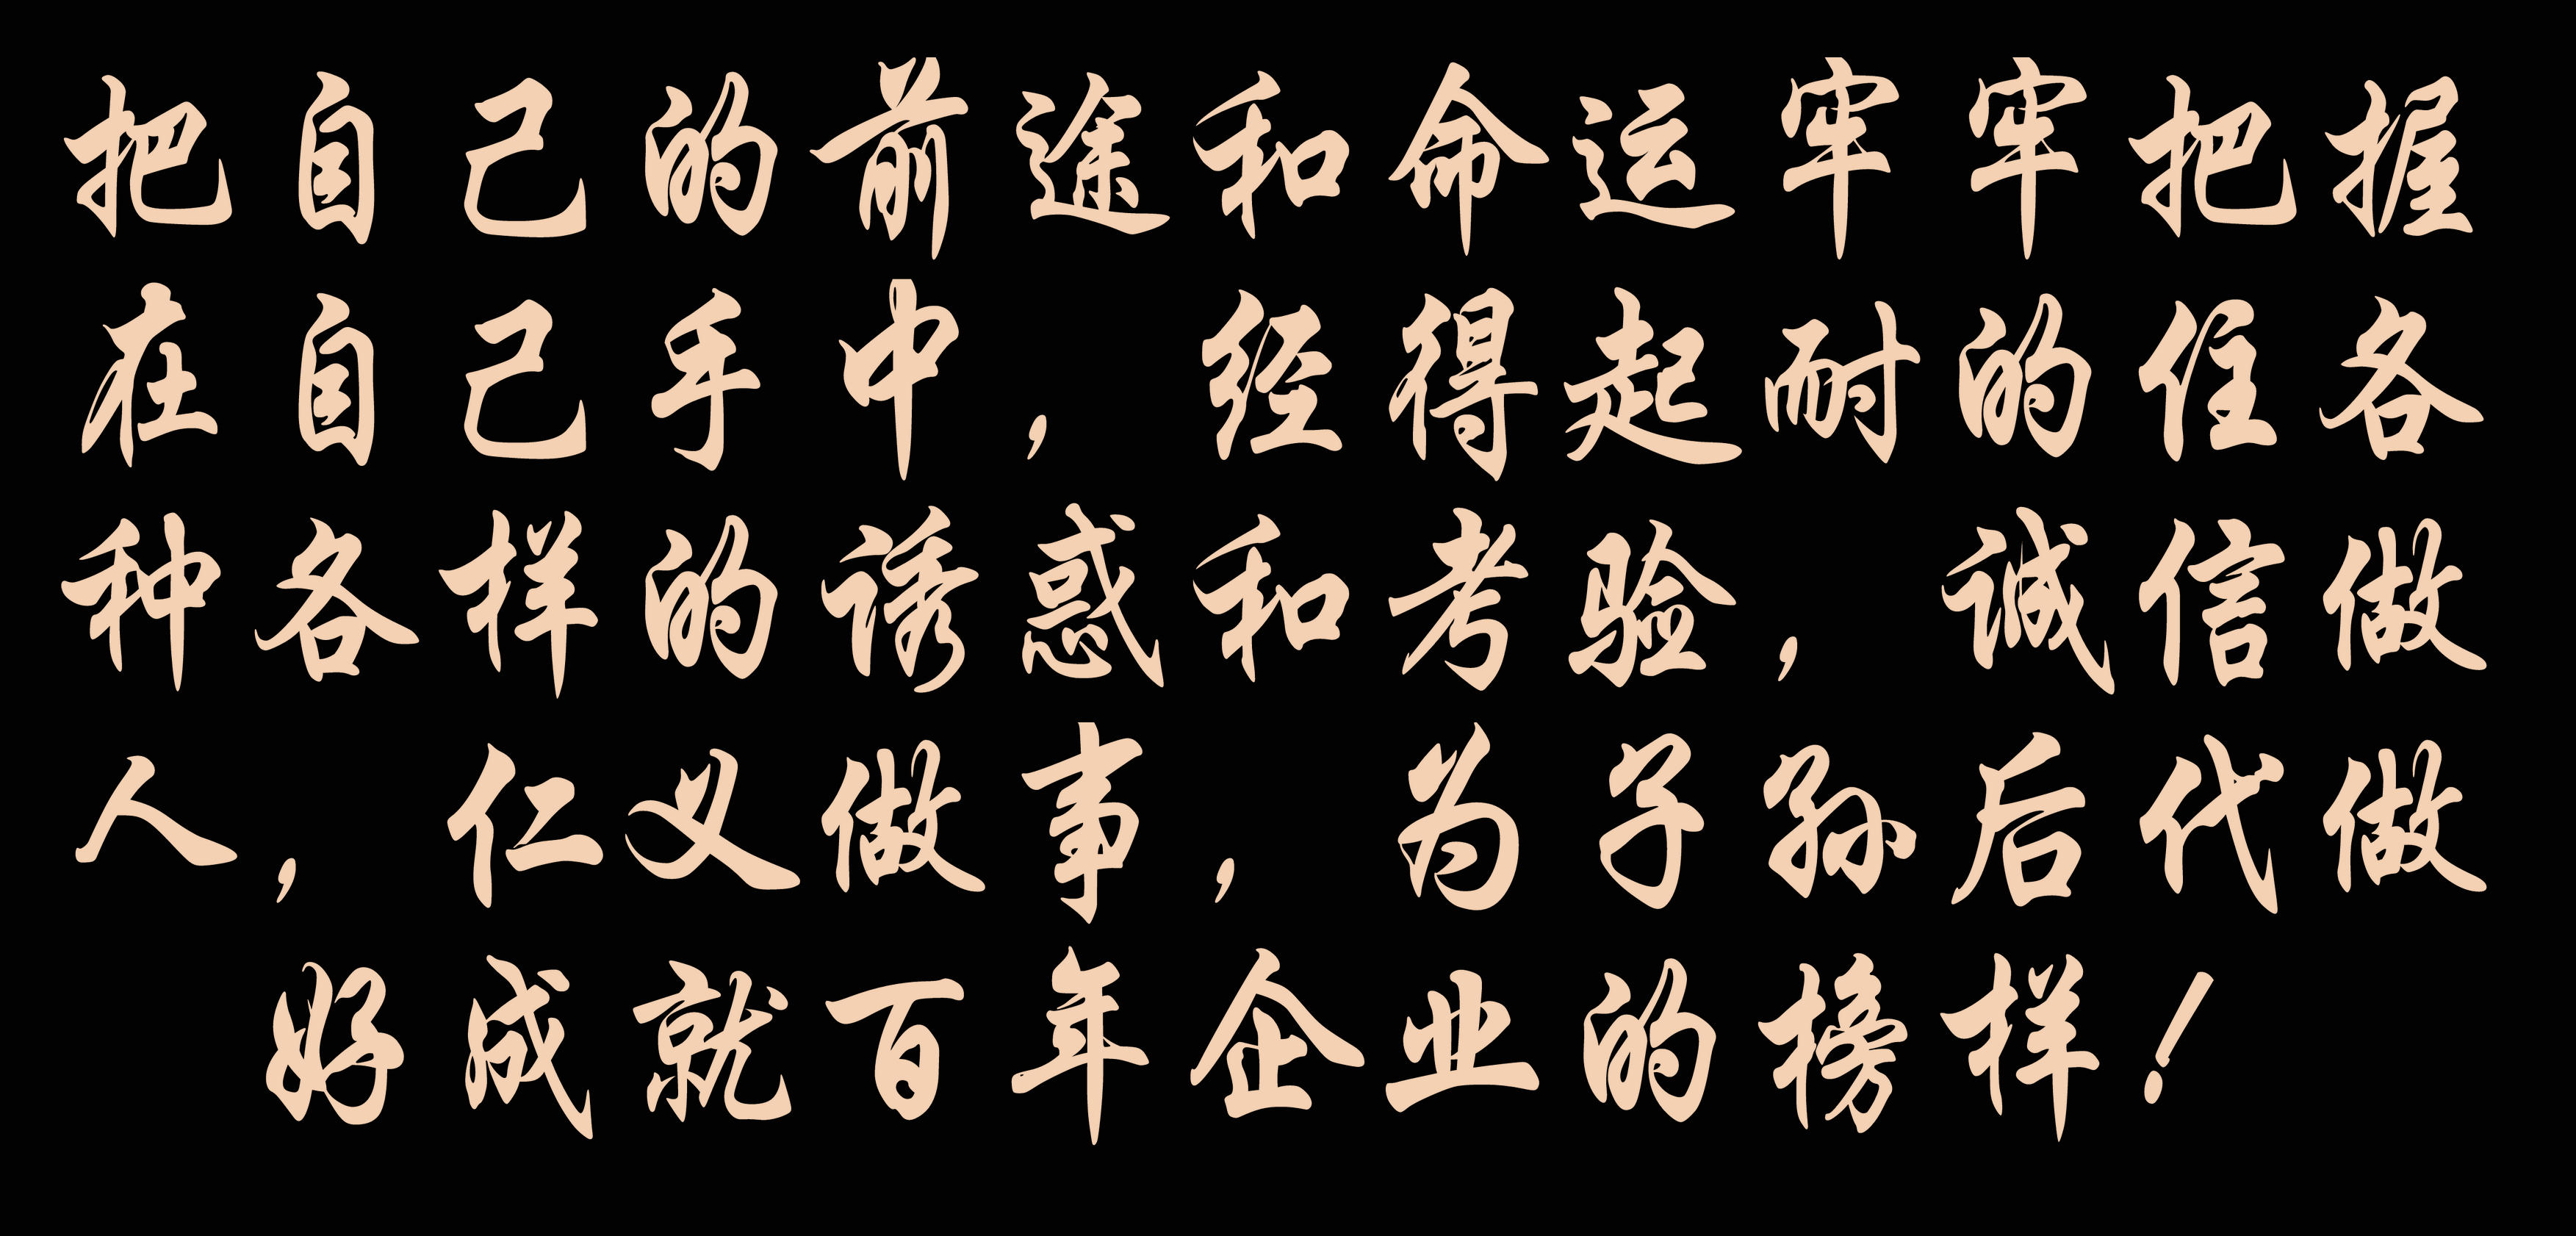 把自己的前途和命运牢牢把握
在自己手中，经得起耐的住各
种各样的诱惑和考验，诚信做
人，仁义做事，为子孙后代做
好成就百年企业的榜样！